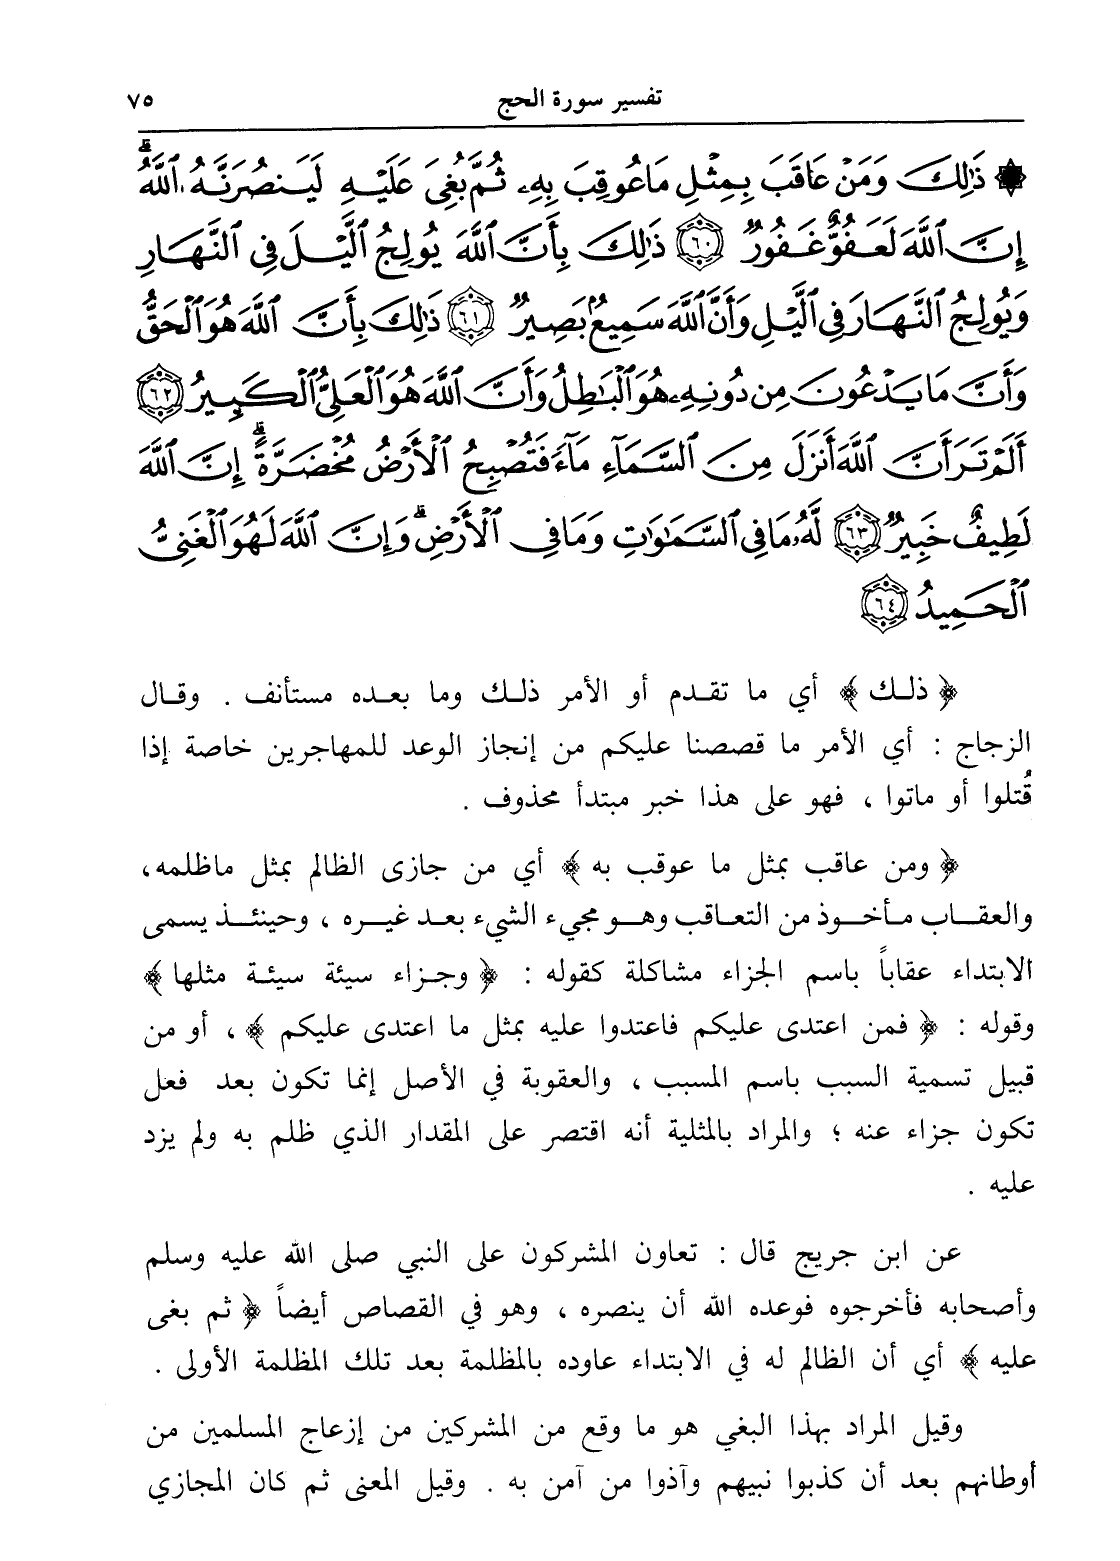 تفسير سورة الحج ٧٥
۞ ذَٰلِكَ وَمَنْ عَاقَبَ بِمِثْلِ مَا عُوقِبَ بِهِۦ ثُمَّ بُغِىَ عَلَيْهِ لَيَنصُرَنَّهُ ٱللَّهُ ۗ
إِنَّ ٱللَّهَ لَعَفُوٌّ غَفُورٌ ﴿٦٠﴾ ذَٰلِكَ بِأَنَّ ٱللَّهَ يُولِجُ ٱلَّيْلَ فِى ٱلنَّهَارِ
وَيُولِجُ ٱلنَّهَارَ فِى ٱلَّيْلِ وَأَنَّ ٱللَّهَ سَمِيعٌۢ بَصِيرٌ ﴿٦١﴾ ذَٰلِكَ بِأَنَّ ٱللَّهَ هُوَ ٱلْحَقُّ
وَأَنَّ مَا يَدْعُونَ مِن دُونِهِۦ هُوَ ٱلْبَٰطِلُ وَأَنَّ ٱللَّهَ هُوَ ٱلْعَلِىُّ ٱلْكَبِيرُ ﴿٦٢﴾
أَلَمْ تَرَ أَنَّ ٱللَّهَ أَنزَلَ مِنَ ٱلسَّمَآءِ مَآءً فَتُصْبِحُ ٱلْأَرْضُ مُخْضَرَّةً ۗ إِنَّ ٱللَّهَ
لَطِيفٌ خَبِيرٌ ﴿٦٣﴾ لَّهُۥ مَا فِى ٱلسَّمَٰوَٰتِ وَمَا فِى ٱلْأَرْضِ ۗ وَإِنَّ ٱللَّهَ لَهُوَ ٱلْغَنِىُّ
ٱلْحَمِيدُ ﴿٦٤﴾
﴿ ذلك ﴾ أي ما تقدم أو الأمر ذلك وما بعده مستأنف . وقال
الزجاج : أي الأمر ما قصصنا عليكم من إنجاز الوعد للمهاجرين خاصة إذا
قُتلوا أو ماتوا ، فهو على هذا خبر مبتدأ محذوف .
﴿ ومن عاقب بمثل ما عوقب به ﴾ أي من جازى الظالم بمثل ماظلمه،
والعقاب مأخوذ من التعاقب وهو مجيء الشيء بعد غيره ، وحينئذ يسمى
الابتداء عقاباً باسم الجزاء مشاكلة كقوله : ﴿ وجزاء سيئة سيئة مثلها ﴾
وقوله : ﴿ فمن اعتدى عليكم فاعتدوا عليه بمثل ما اعتدى عليكم ﴾ ، أو من
قبيل تسمية السبب باسم المسبب ، والعقوبة في الأصل إنما تكون بعد فعل
تكون جزاء عنه ؛ والمراد بالمثلية أنه اقتصر على المقدار الذي ظلم به ولم يزد
عليه .
عن ابن جريج قال : تعاون المشركون على النبي صلى الله عليه وسلم
وأصحابه فأخرجوه فوعده الله أن ينصره ، وهو في القصاص أيضاً ﴿ ثم بغى
عليه ﴾ أي أن الظالم له في الابتداء عاوده بالمظلمة بعد تلك المظلمة الأولى .
وقيل المراد بهذا البغي هو ما وقع من المشركين من إزعاج المسلمين من
أوطانهم بعد أن كذبوا نبيهم وآذوا من آمن به . وقيل المعنى ثم كان المجازي